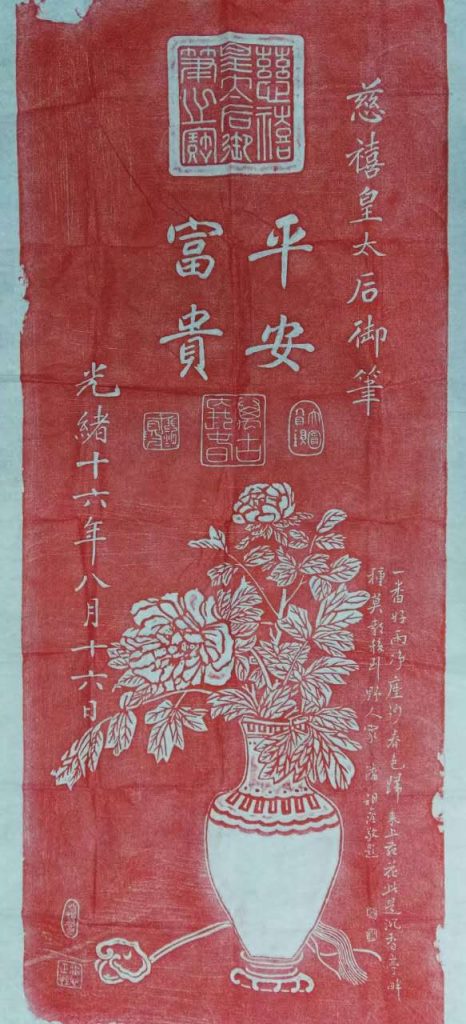 慈禧皇太后御筆
慈禧
皇太后御
筆之寶
平安
富貴
光緒十六年八月十六日
一番好雨净塵沙春色歸來上苑花此是沉香亭畔
種莫教移到野人家 潘祖蔭敬題